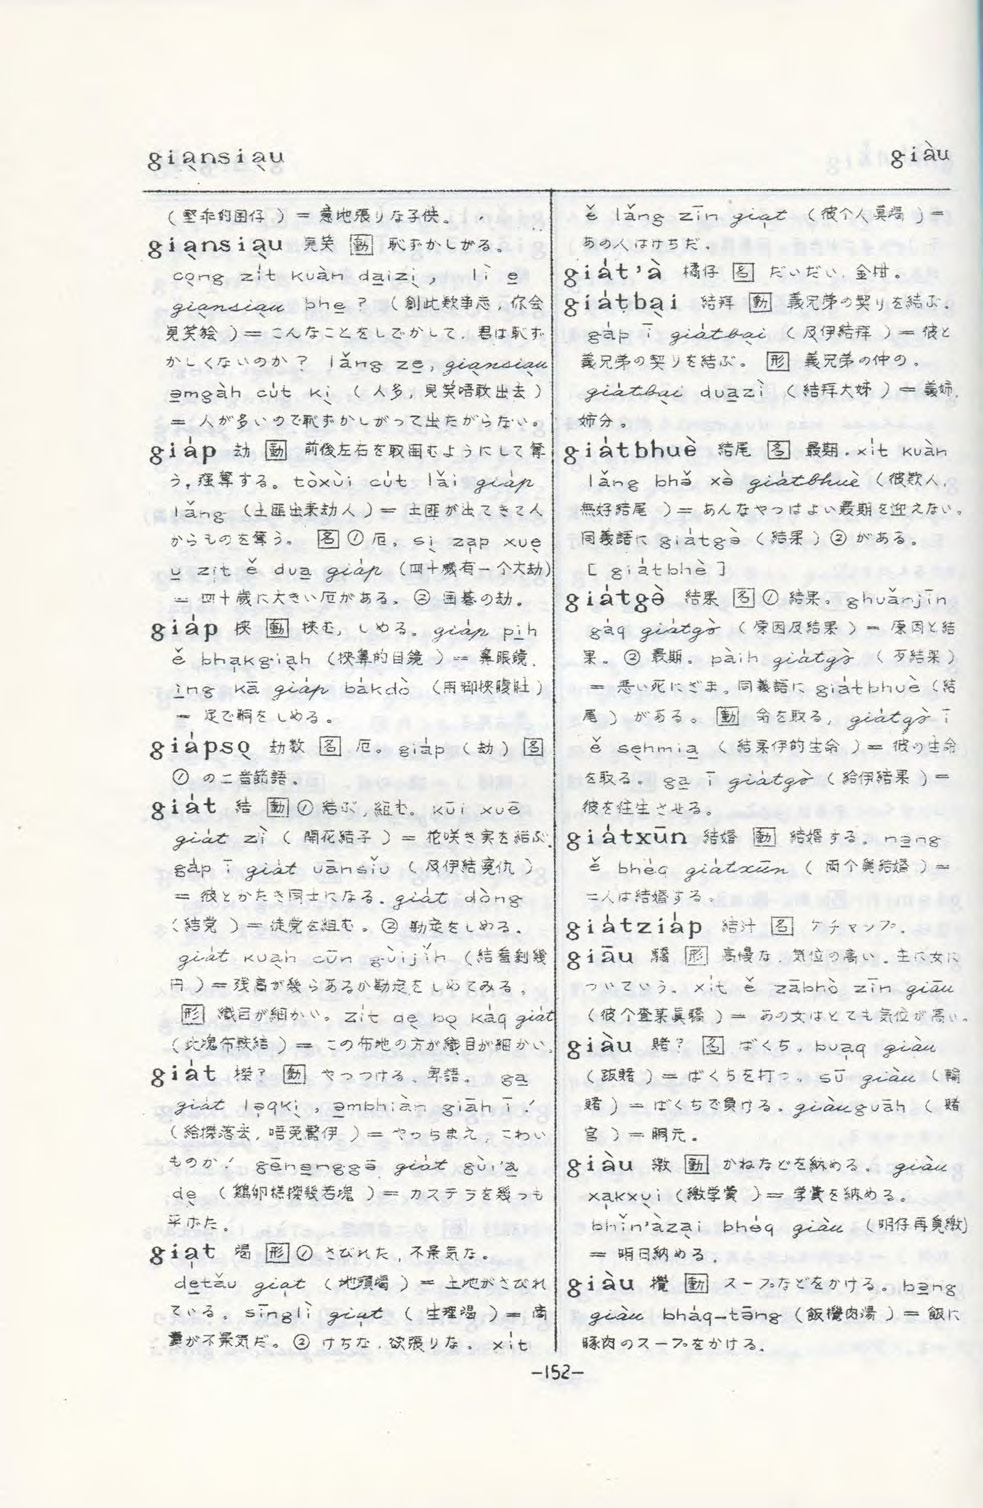 giạnsiạu
giàu
(堅乖的囡仔)=意地張りな子供。
giạnsiạu 見笑 [動] 恥ずかしがる。
cọng zi̍t kuàn da̱izị, lì e̱
giạnsiạu bhe̱? (創此款事志,你会
見笑𣍐)=こんなことをしでかして,君は恥ず
かしくないのか? lǎng ze̱, giạnsiạu
a̱mgàh cu̍t kị (人多,見笑唔敢出去)
=人が多いので恥ずかしがって出たがらない。
gia̍p 劫 [動] 前後左右を取囲むようにして奪
う,強奪する。tòxùi cu̍t lǎi gia̍p
lǎng (土匪出来劫人)=土匪が出てきて人
からものを奪う。[名]①厄。sị za̱p xuẹ
u̱ zi̱t ě dua̱ gia̍p (四十歳有一个大劫)
=四十歳に大きい厄がある。②囲碁の劫。
gia̍p 挾 [動] 挾む,しめる。gia̍p pi̱h
ě bha̱kgiạh (挾鼻的目鏡)=鼻眼鏡。
ìng kā gia̍p ba̍kdò (用脚挾腹肚)
=足で胴をしめる。
gia̍psọ 劫数 [名] 厄。gia̍p (劫) [名]
①の二音節語。
gia̍t 結 [動]①結ぶ,組む。kūi xuē
gia̍t zì (開花結子)=花咲き実を結ぶ。
ga̍p ī gia̍t uānsǐu (及伊結冤仇)
=彼とかたき同士になる。gia̍t dòng
(結党)=徒党を組む。②勘定をしめる。
gia̍t kuạh cūn gùijǐh (結看剰幾
円)=残高が幾らあるか勘定をしめてみる。
[形] 織目が細かい。zi̍t dẹ bọ ka̍q gia̍t
(此塊布較結)=この布地の方が織目が細かい。
gia̍t 揲? [動] やっつける,卑語。ga̱
gia̍t lo̱qkị, a̱mbhiàn giāh ī!
(給揲落去,唔免驚伊)=やっちまえ,こわい
ものか! gēne̱nggō gia̍t gùi'a̱
dẹ (鶏卵糕揲幾若塊)=カステラを幾つも
平げた。
giạt 竭 [形]①さびれた,不景気な。
de̱tǎu giạt (地頭竭)=土地がさびれ
ている。sīnglì giạt (生理竭)=商
売が不景気だ。②けちな,欲張りな。xi̍t
ě lǎng zīn giạt (彼个人真竭)=
あの人はけちだ。
gia̍t'à 橘仔 [名] だいだい,金柑。
gia̍tbại 結拜 [動] 義兄弟の契りを結ぶ。
ga̍p ī gia̍tbại (及伊結拜)=彼と
義兄弟の契りを結ぶ。[形] 義兄弟の仲の。
gia̍tbại dua̱zì (結拜大姉)=義姉,
姉分。
gia̍tbhuè 結尾 [名] 最期。xi̍t kuàn
lǎng bhǒ xò gia̍tbhuè (彼款人,
無好結尾)=あんなやつはよい最期を迎えない。
同義語に gia̍tgò (結果) ② がある。
[gia̍tbhè]
gia̍tgò 結果 [名]① 結果。ghuǎnjīn
ga̍q gia̍tgò (原因及結果)=原因と結
果。②最期。pàih gia̍tgò (歹結果)
=悪い死にざま。同義語に gia̍tbhuè (結
尾) がある。[動] 命を取る。gia̍tgò ī
ě sẹhmia̱ (結果伊的生命)=彼の生命
を取る。ga̱ ī gia̍tgò (給伊結果)=
彼を往生させる。
gia̍txūn 結婚 [動] 結婚する。no̱ng
ě bhe̍q gia̍txūn (両个𠢕結婚)=
二人は結婚する。
gia̍tzia̍p 結汁 [名] ケチャップ。
giāu 驕 [形] 高慢な,気位の高い。主に女に
ついていう。xi̍t ě zābhò zīn giāu
(彼个查某真驕)=あの女はとても気位が高い。
giàu 賭? [名] ばくち。bua̱q giàu
(跋賭)=ばくちを打つ。sū giàu (輸
賭)=ばくちで負ける。giàuguāh (賭
官)=胴元。
giàu 繳 [動] かねなどを納める。giàu
xa̱kxụi (繳学費)=学費を納める。
bhǐn'àzại bhe̍q giàu (明仔再𠢕繳)
=明日納める。
giàu 攪 [動] スープなどをかける。bo̱ng
giàu bha̍q-tōng (飯攪肉湯)=飯に
豚肉のスープをかける。
—152—